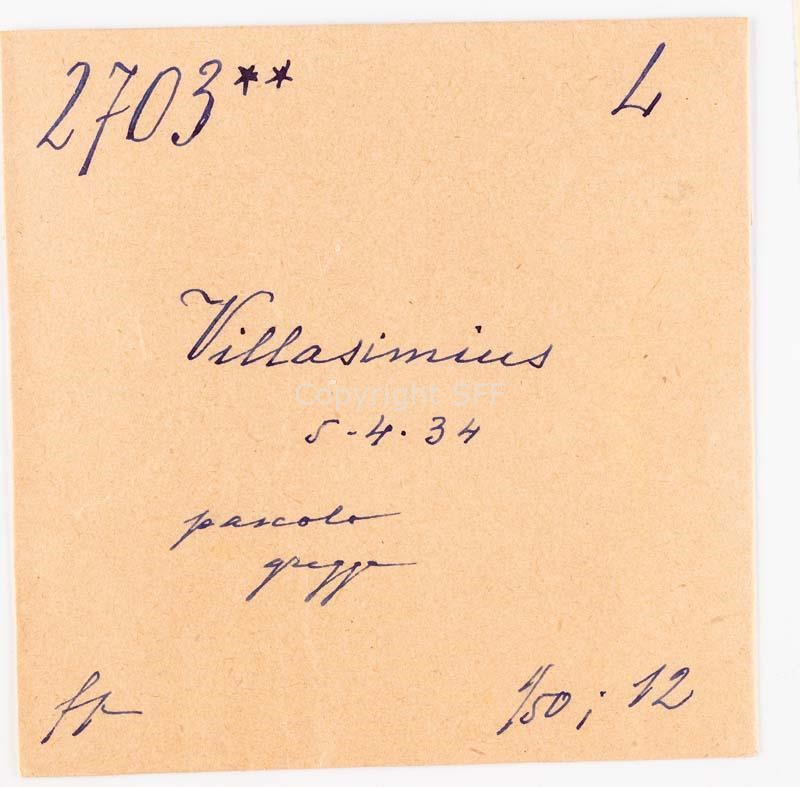 2703** L
Villasimius
Copyright SFF
5-4.34
pascolo
gregge
fp
1/50; 12